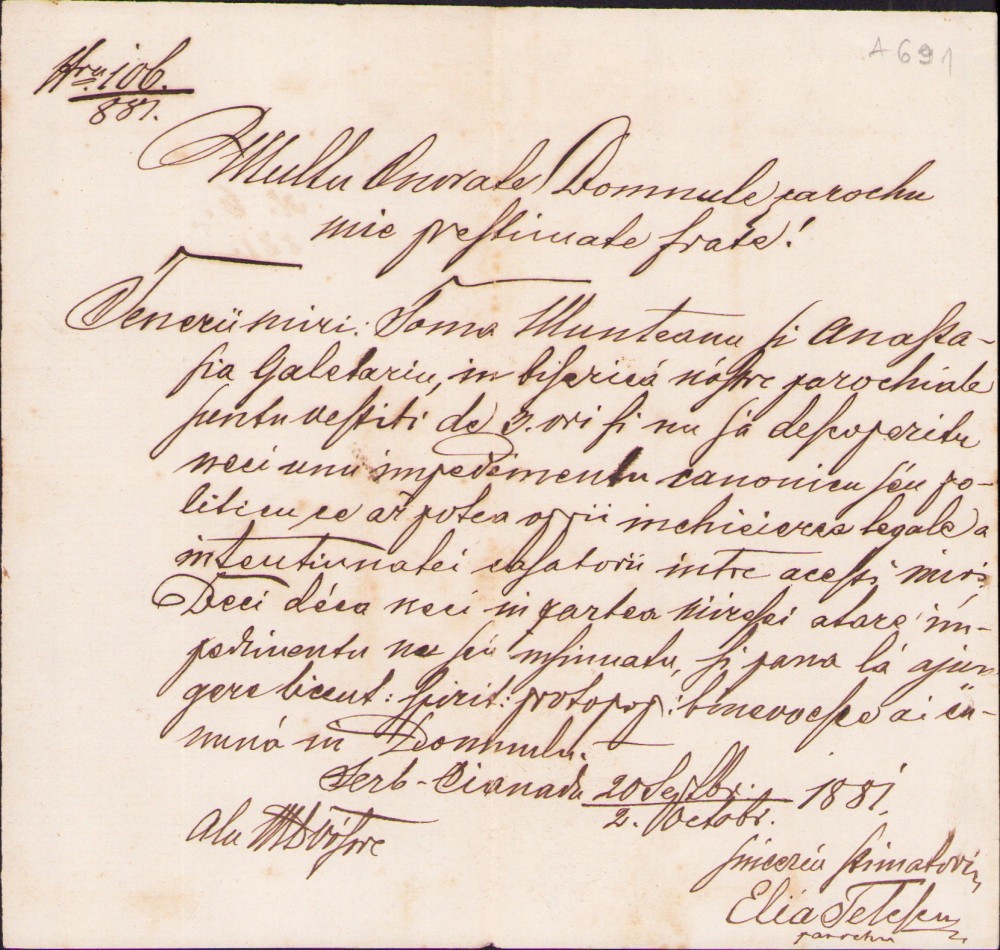 A 691
Nru 106.
881.
Multu Onorate Domnule parochu
mie prestimate frate!
Tenerii miri: Toma Munteanu si Anasta-
sia Galetariu, in biserica nóstre parochiale
suntu vestiti de 3. ori si nu sa descoperitu
neci unu impedimentu canonicu séu po-
liticu ce ar potea opri inchieierea legale a
intentiunatei casatorii intre acesti miri,
Deci déca neci in partea miresei atare im-
pedimentu nu insinuatu, si pana la ajun
gere licent: spirit: protopop: binevoesce ai cu-
nuná in Domnulu.
Serb-Cianadu 20 Septbr. 1881.
2. Octobr.
Alu MD Vóstre
sinceriu stimatoriu
Elia Telescu
parochu